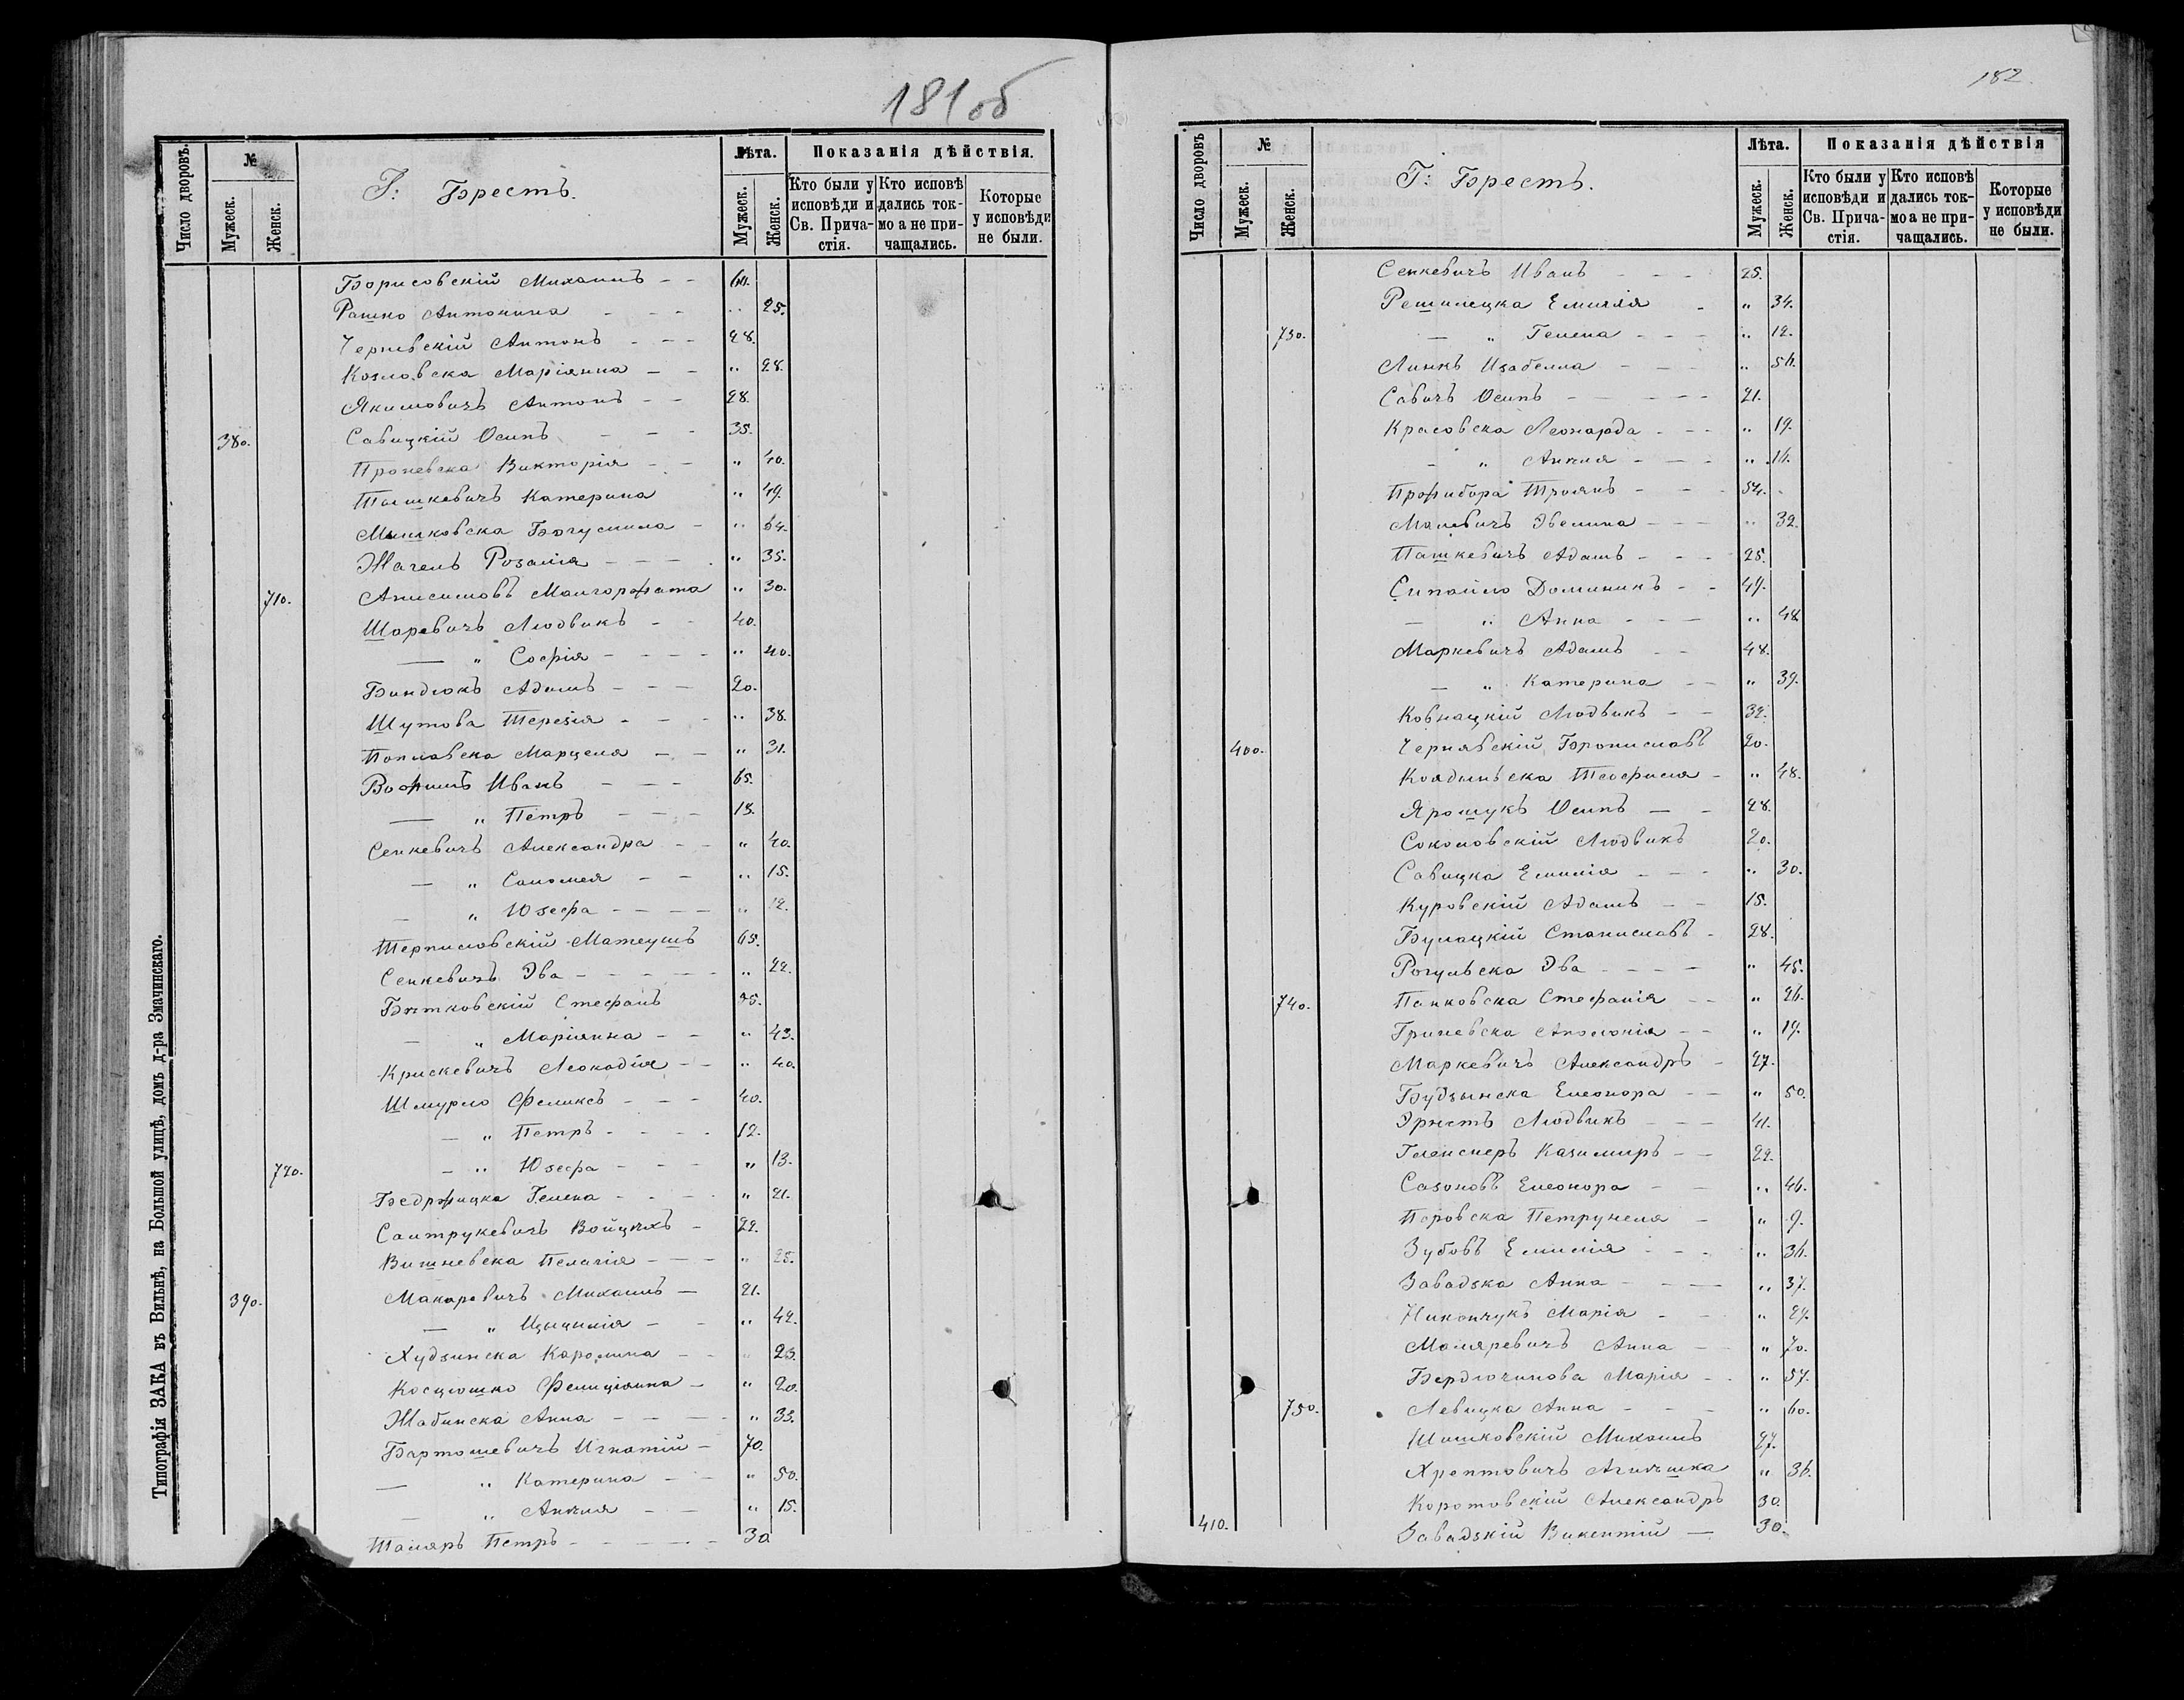 181 об
Число дворовъ.
№
Мужеск.
Женск.
Г: Брестъ.
Лѣта.
Мужеск.
Женск.
Показанія дѣйствія.
Кто были у исповѣди и Св. Прича-стія.
Кто исповѣ дались ток-мо а не при-чащались.
Которые у исповѣди не были.
Борисовскій Михаилъ - - 60.
Рашко Антонина - - - „ 25.
Чернявскій Антонъ - - - 28.
Козловска Маріянна - - „ 28.
Якимовичъ Антонъ - - 28.
380. Савицкій Осипъ - - - 35.
Проневска Викторія - - „ 40.
Талишкевичъ Катерина „ 49.
Мышковска Богумила - „ 64.
Жагель Розалія - - - „ 35.
710. Анисимовъ Малгоржата „ 30.
Шаревичъ Людвикъ - - 40.
— „ Софія - - - - „ 40.
Биндюкъ Адамъ - - - 20.
Шутова Терезія - - - „ 38.
Поплавска Марцеля - - „ 31.
Иванъ - - - 65.
— „ Петръ - - - 13.
Сенкевичъ Александра - - „ 40.
— „ Саломея - - „ 15.
— „ Юзефа - - - - „ 12.
Терписловскій Матеушъ 65.
Сенкевичъ Эва - - - - - „ 22.
Бытковскій Стефанъ
— „ Маріянна - - „ 43.
Крискевичъ Леокадія - - „ 40.
Шмурло Феликсъ - - - 40.
— „ Петръ - - - - 12.
720. — „ Юзефа - - - „ 13.
Бедржицка Гелена - - - „ 21.
Сантрукевичъ Войцѣхъ - 22.
Вишневска Пелагія - - - „ 25.
390. Макаревичъ Михаилъ - 21.
— „ Цыцилія - - „ 42.
Худзинска Каролина - - „ 23.
Косцюшко Фелиціянна - „ 20.
Жабинска Анна - - - - „ 33.
Бартошевичъ Игнатій - 70.
— „ Катерина - - „ 50.
— „ Анѣля - - „ 15.
Таляръ Петръ - - - - - 30
Типографія ЗАКА въ Вильнѣ, на Большой улицѣ, домъ д-ра Змачинскаго.
182
Число дворовъ
№
Мужеск.
Женск.
Г: Брестъ.
Лѣта.
Мужеск.
Женск.
Показанія дѣйствія
Кто были у исповѣди и Св. Прича-стія.
Кто исповѣ дались ток-мо а не при-чащались.
Которые у исповѣди не были.
Сенкевичъ Иванъ - - - 25.
Решилецка Емилія - „ 34.
730. — „ Гелена - - - „ 12.
Линкъ Изабелла - - - „ 56.
Савичъ Осипъ - - - - - 21.
Красовска Леонарда - - - „ 19.
- „ Анѣля - - - „ 16.
Троянъ - - - 54.
Малевичъ Эвелина - - - „ 32.
Пашкевичъ Адамъ - - - 25.
Сипайло Доминикъ - - 49.
— „ Анна - - - „ 48
Маркевичъ Адамъ - - 48.
— „ Катерина - - „ 39.
Ковнацкій Людвикъ - - 32.
400. Чернявскій Брониславъ 20.
Колдыньска Теофиля - „ 48.
Ярошукъ Осипъ - - 28.
Соколовскій Людвикъ 20.
Савицка Емилія - - - „ 30.
Куровскій Адамъ - - 15.
Булацкій Станиславъ - 28.
Рогульска Эва - - - - „ 45.
740. Панковска Стефанія - - „ 26.
Гриневска Аполонія - - „ 19.
Маркевичъ Александръ - 27.
Будзынска Елеонора - - „ 50.
Эрнстъ Людвикъ - - - 41.
Гленснеръ Казимиръ - - 22.
Сазоновъ Елеонора - - „ 46.
Перовска Петрунеля - „ 9.
Зубовъ Емилія - - - „ 36.
Завадзка Анна - - - „ 37.
Никончукъ Марія - - „ 29.
Маляревичъ Анна - - „ 70.
Бердючинова Марія - - „ 57.
750. Левицка Анна - - - „ 60.
Шишковскій Михаилъ 27.
Хрептовичъ Агнѣшка „ 36.
Коротовскій Александръ 30
410. Завадзкій Викентій - 30.